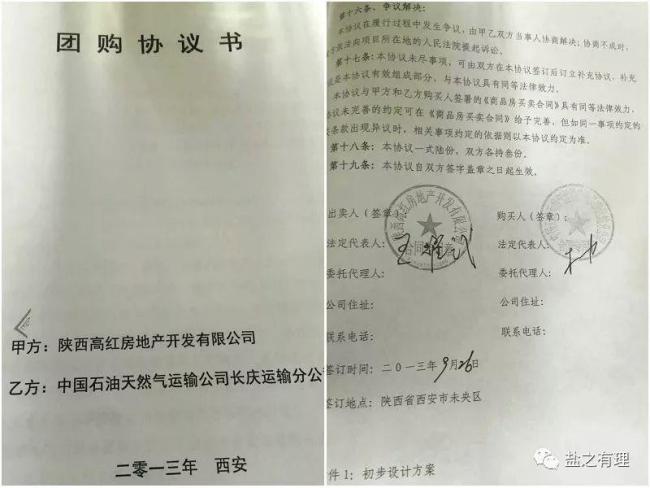 团购协议书
甲方：陕西高红房地产开发有限公司
乙方：中国石油天然气运输公司长庆运输分公
二零一三年 西安
第十六条、争议解决：
本协议在履行过程中发生争议，由甲乙双方当事人协商解决；协商不成时，
依法向项目所在地的人民法院提起诉讼。
第十七条：本协议未尽事项，可由双方在本协议签订后订立补充协议，补充
本协议有效组成部分，与本协议具有同等法律效力。
本协议与甲方和乙方购买人签署的《商品房买卖合同》具有同等法律效力，
协议未完善的约定可在《商品房买卖合同》给予完善，但如同一事项约定的
条款出现异议时，相关事项约定的依据则以本协议约定为准。
第十八条：本协议一式陆份，双方各持叁份。
第十九条：本协议自双方签字盖章之日起生效。
出卖人（签章）：
购买人（签章）：
陕西高红房地产开发有限公司
合同专用章
法定代表人：
法定代表人：
委托代理人：
委托代理人：
公司住址：
公司住址：
联系电话：
联系电话：
签订时间：二〇一三年9月26日
签订地点：陕西省西安市未央区
件1：初步设计方案
盐之有理